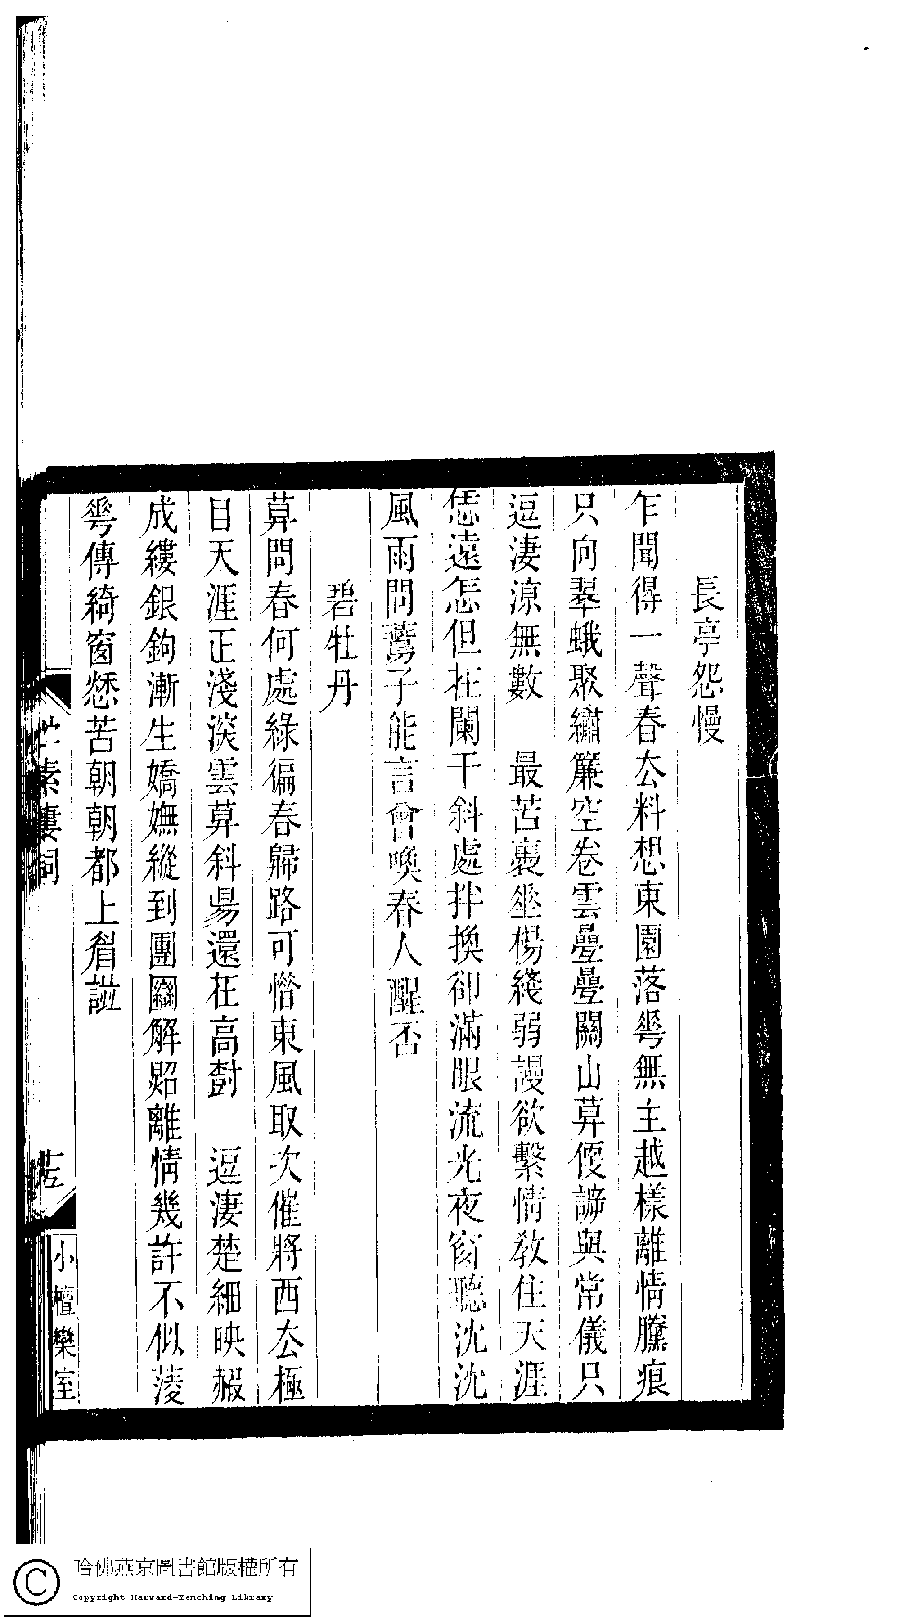 長亭怨慢
乍聞得一聲春厺料想東園落雩無主越樣離情臒痕
只向翠蛾聚繡簾空卷雲疊疊關山萛便諦與常儀只
逗淒涼無數　最苦裏坐楊綫弱謾欲繫情教住天涯
恁遠怎但在闌干斜處拌換卻滿眼流光夜窗聽沈沈
風雨問鷰子能言會喚春人醒否
碧牡丹
萛問春何處綠徧春歸路可惜東風取次催將西厺極
目天涯正淺淡雲萛斜陽還在高樹　逗淒楚細映綴
成縷銀鉤漸生嬌嫵縱到團圞解照離情幾許不似菱
雩傳綺窗愁苦朝朝都上眉譜
芷素廔詞
小檀欒室
哈佛燕京圖書館版權所有
Copyright Harvard-Yenching Library